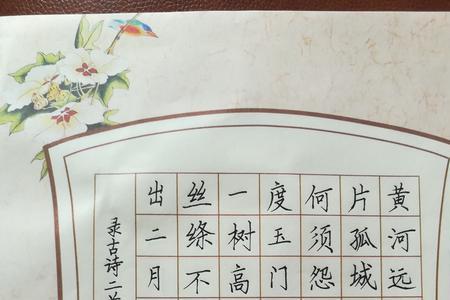 黄河远
片孤城
何须怨
度玉门
一树高
丝绦不
出二月
录古诗二